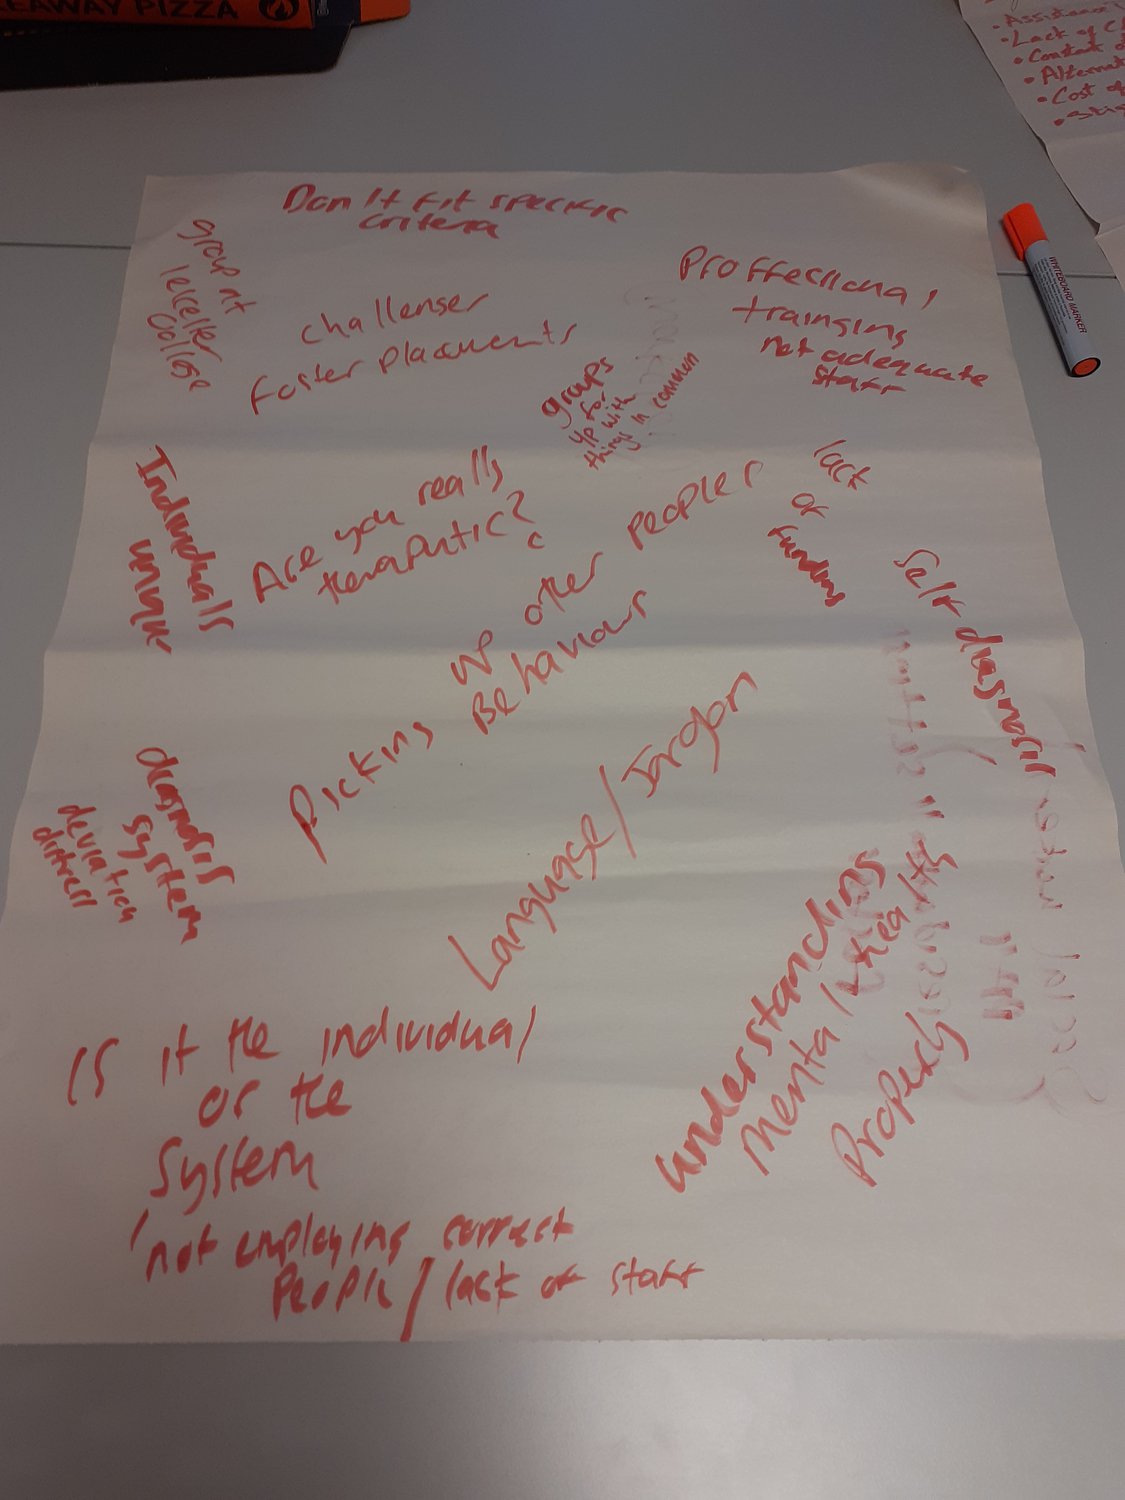 EAWAY PIZZA
Assistance
Lack of
Constant
Alternat
Cost of
WHITEBOARD MARKER
Don't fit specific
criteria
group at
leicester
college
challenges
foster placements
Proffessional
trainging
not adequate
staff
groups
for
yp with
things in common
Individuals
unique
Are you really
theraputic?
lack
of
Funding
Picking up other peoples
Behaviours
Self diagnosis
diagnosis
system
deviation
distress
Language/Jargon
understanding
mental health
Properly
Is it the individual
or the
System
not employing correct
People/lack of staff